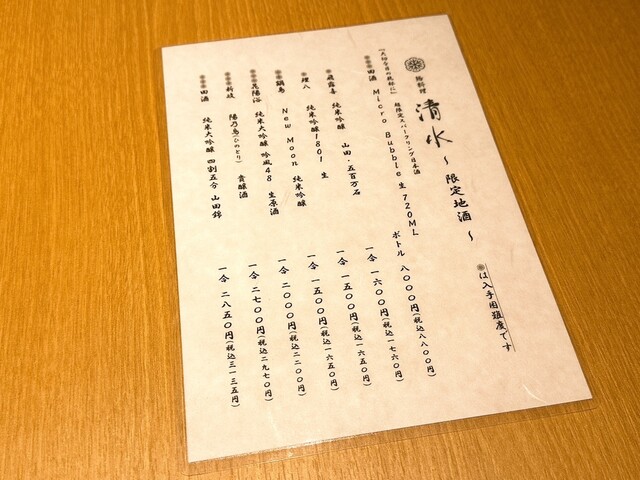 清水 ～限定地酒～
※は入手困難度です
『大切な日の乾杯に』 超限定スパークリング日本酒
※※※田酒 Micro Bubble 生 720ML ボトル 八〇〇〇円(税込八八〇〇円)
※飛露喜 純米吟醸 山田・五百万石 一合 一六〇〇円(税込一七六〇円)
純米吟醸1801 生 一合 一五〇〇円(税込一六五〇円)
※鍋島 New Moon 純米吟醸 一合 一五〇〇円(税込一六五〇円)
花陽浴 純米大吟醸 吟風48 生原酒 一合 二〇〇〇円(税込二二〇〇円)
※※新政 陽乃鳥(ひのとり) 貴醸酒 一合 二七〇〇円(税込二九七〇円)
※※※田酒 純米大吟醸 四割五分 山田錦 一合 二八五〇円(税込三一三五円)